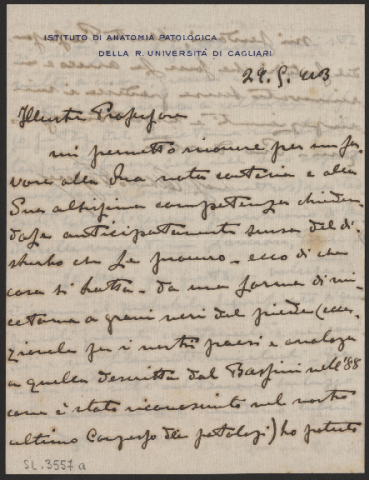 ISTITUTO DI ANATOMIA PATOLOGICA
DELLA R. UNIVERSITÀ DI CAGLIARI
29. 5. 913
Illustre Professore
mi permetto ricorrere per un fa-
vore alla Sua nota cortesia e alla
Sua altissima competenza chieden-
dole anticipatamente scusa del di-
sturbo che Le procuro - ecco di che
cosa si tratta - da una forma di mi-
cetoma a grani neri del piede (ecce-
zionale per i nostri paesi e analoga
a quella descritta dal Bassini nell'88
come è stato riconosciuto nel nostro
ultimo Congresso dei patologi) ho potuto
SL. 3557a